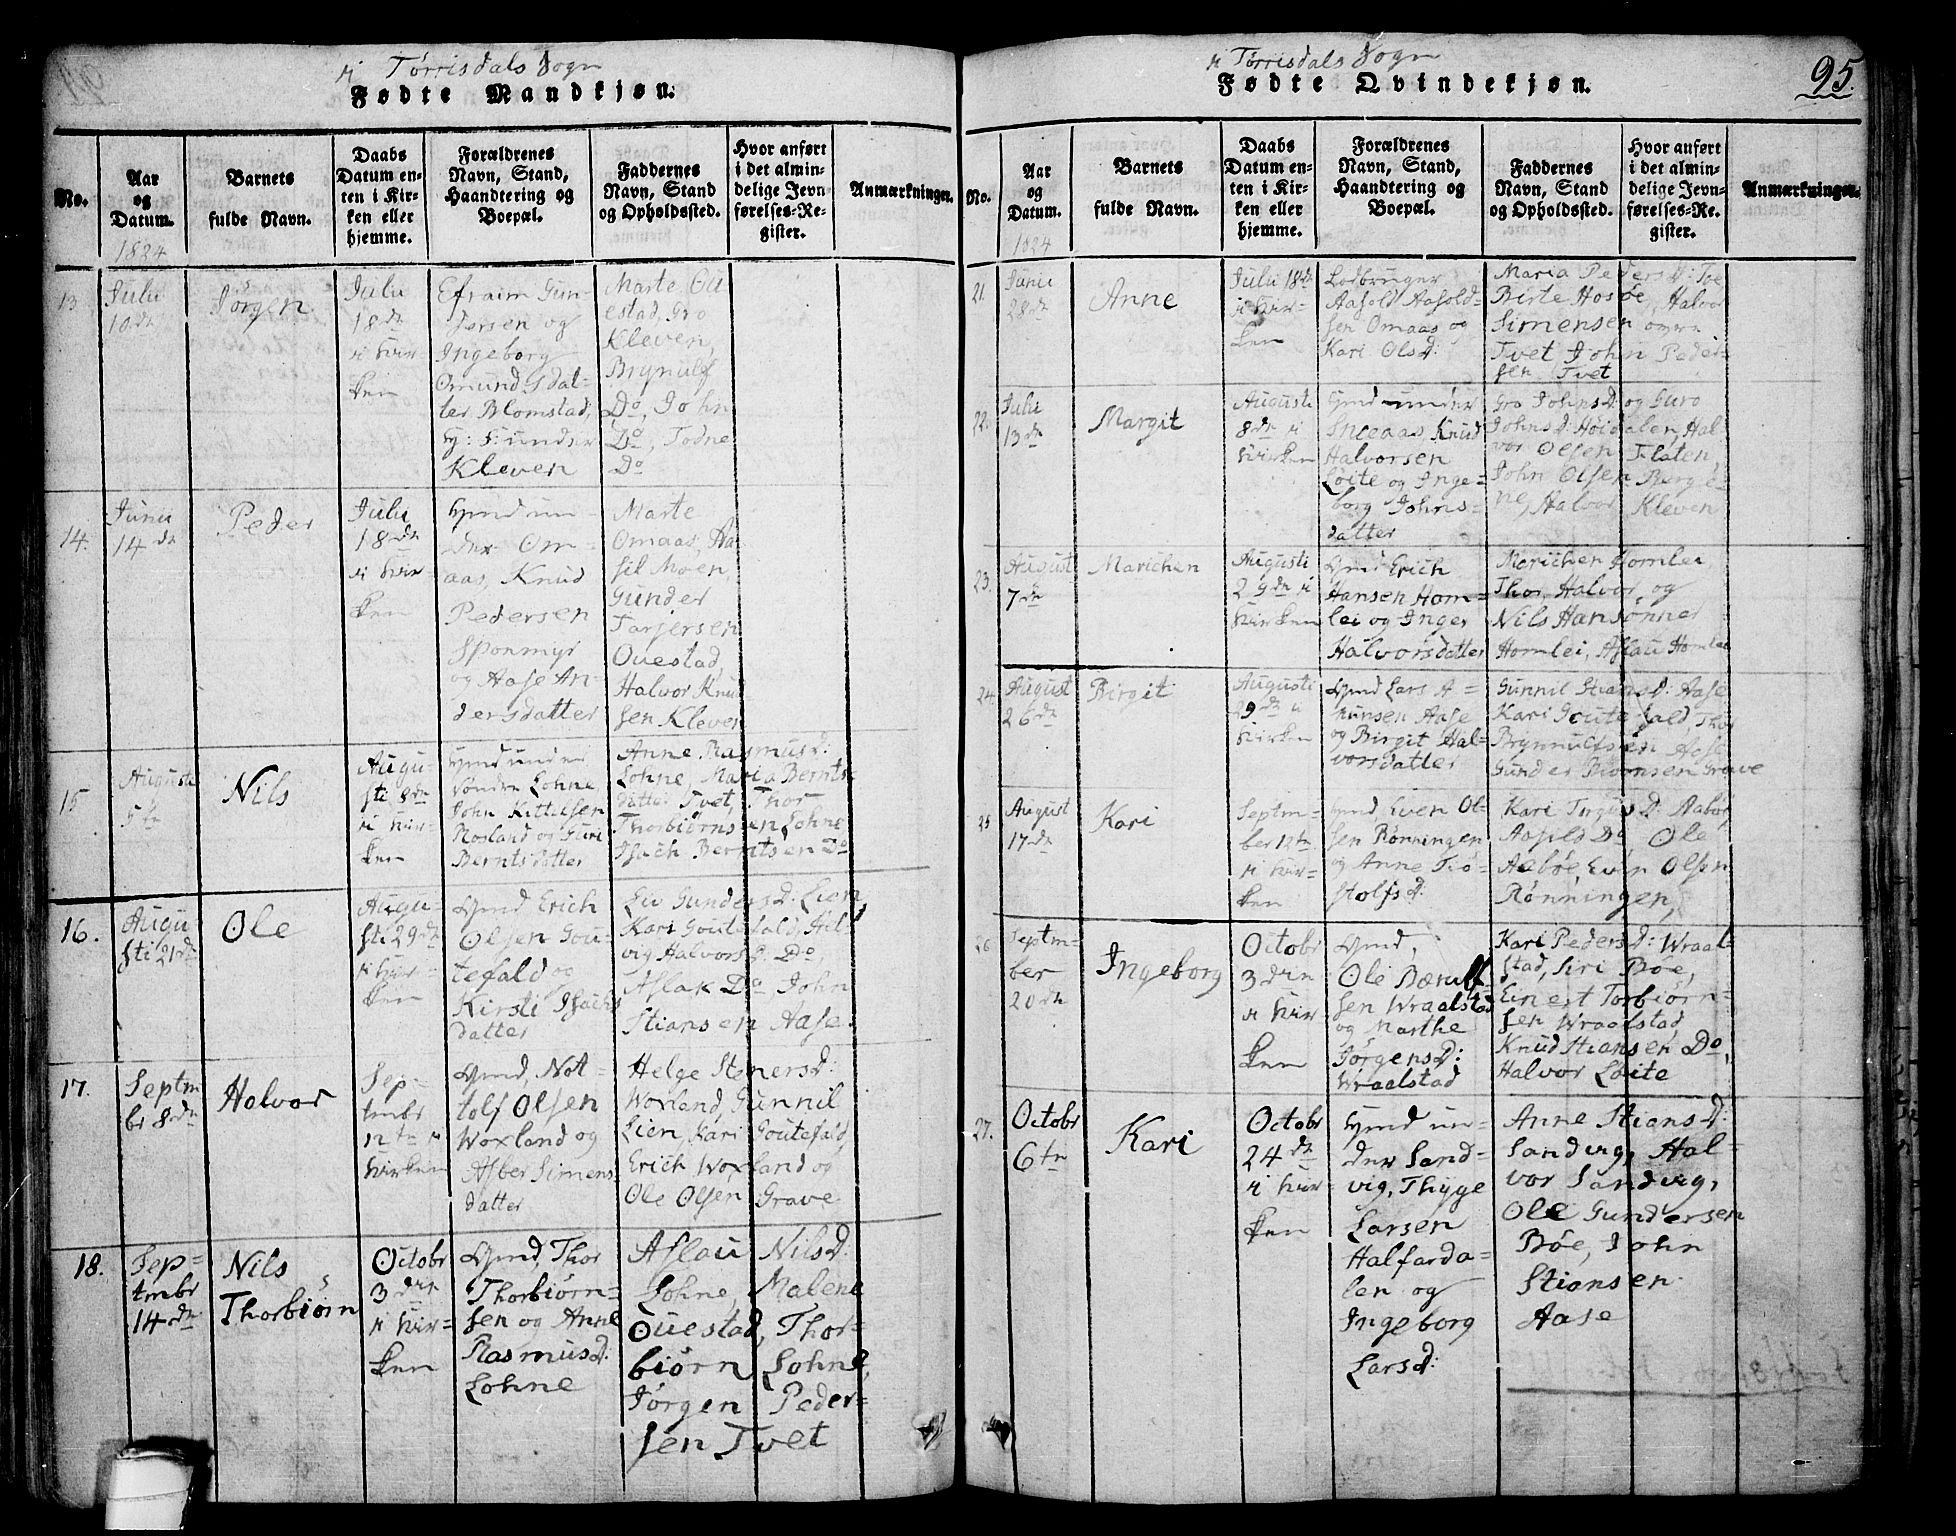 i Tørrisdals Sogn
Fødte Mandkjøn.
No.
Aar
og
Datum.
1824
Barnets
fulde Navn.
Daabs
Datum en-
ten i Kir-
ken eller
hjemme.
Forældrenes
Navn, Stand,
Haandtering og
Boepæl.
Faddernes
Navn, Stand
og Opholdssted.
Hvor anført
i det almin-
delige Jevn-
førelses-Re-
gister.
Anmærkninger.
13
Julii
10de
Jörgen
Julii
18de
i Kir-
ken
Efraim Gun-
dersen og
Ingeborg
Omundsdat-
ter Blomstad,
under
Kleven
Marte Ou-
estad, Gro
Kleven,
Brynulf
Do, John
Do, Todne
Do
14.
Junii
14de
Peder
Julii
18de
i Kir-
ken
Gmd un-
der Om-
aas, Knud
Pedersen
Sponmyr
og Aase An-
dersdatter
Marte
Omaas, Aa-
sil Moen,
Gunder
Tarjersen
Ouestad,
Halvor Knu
sen Kleven
15
Augusti
5te
Nils
Augu-
sti 8de
i Kir-
ken
Gmd under
Söndre Lohne
John Kittilsen
Rosland og Guri
Berntsdatter
Anne Rasmusd:
Lohne, Maria Bernts-
datter Tvet, Thor
Thorbiørnsen Lohne
Isach Berntsen Do
16.
Augu
sti 21de
Ole
Augu-
sti 29de
i Kir-
ken
Gmd Erich
Olsen Gou-
tefald og
Kirsti Isachs
datter
Liv Gundersd. Lien,
Kari Goutefald, Hel-
vig Halvorsd: Do,
Aslak Do, John
Stiansen Aase.
17.
Septm
br 8de
Halvor
Sep-
tmbr
12te i
Kirken
Gmd, Not-
tolf Olsen
Woxland og
Asber Simens
datter
Helge Stenersd:
Woxland, Gunnil
Lien, Kari Goutefald,
Erich Woxland og
Ole Olsen Grave.
18.
Sep-
tmbr
14de
Nils
Thorbiörn
Octobr
3die
i Kir-
ken
Gmd, Thor
Thorbiørn-
sen og Anne
Rasmusd:
Lohne
Aslau Nilsd:
Lohne, Malene
Ouestad, Thor-
biörn Lohne,
Jörgen Peder-
sen Tvet
i Tørrisdals Sogn
Fødte Qvindekjøn.
95.
No.
Aar
og
Datum.
1824
Barnets
fulde Navn.
Daabs
Datum en-
ten i Kir-
ken eller
hjemme.
Forældrenes
Navn, Stand,
Haandtering og
Boepæl.
Faddernes
Navn, Stand
og Opholdssted.
Hvor anført
i det almin-
delige Jevn-
førelses-Re-
gister.
Anmærkninger.
21.
Junii
28de
Anne
Julii 18de
i Kir-
ken
Lodbruger
Aasold Aasold-
sen Omaas og
Kari Olsd:
Maria Pedersd: Tve
Birte Hosöe, Halvor
Simensen
Tvet John Peder-
sen Tvet
22.
Julii
13de
Margit
Augusti
8de i
Kirken
Gmd under
Sneaas, Knud
Halvorsen
Löite og Inge-
borg Johns-
datter
Gro Johnsd og Guro
Johnsd: Höidalen, Hal-
vor Olsen Flaten,
John Olsen Berge
ne, Halvor Kleven
23.
August
7de
Marichen
Augusti
29de i
Kirken
Gmd Erich
Hansen Hom-
lei og Inger
Halvorsdatter
Marichen Homlei,
Thor, Halvor, og
Nils Hansønner
Homlei, Aslau Homlei
24.
August
26de
Birgit
Augusti
29de i
Kirken
Gmd Lars A-
munsen Aase
og Birgit Hal-
vorsdatter
Gunnil Stiansd: Aase
Kari Goutefald, Thor
Brynnulfsen Aase
Gunder Grave
25
August
17de
Kari
Septm-
ber 12te
i Kir-
ken
Gmd, Even Ol-
sen Rønningen
og Anne Tiö-
stolfsd:
Kari Tergusd: Aabøe
Aasld Do Ole
Aabøe, Even Olsen
Rønningen,
26
Septm-
ber
20de
Ingeborg
Octobr
3die
i Kir-
ken
Gmd,
Ole Bærulf
sen Wraalstad
og Marthe
Jörgensd:
Wraalstad
Kari Pedersd: Wraal-
stad, Siri Böe,
Einert Torbiörn-
sen Wraalstad,
Knud Stiansen Do,
Halvor Löite
27.
Octobr
6te
Kari
Octobr
24de
i Kir-
ken
Gmd un-
der Sand-
vig, Thyge
Larsen
Halfarda-
len og
Ingeborg
Larsd:
Anne Stiansd:
Sandvig, Hal-
vor Sandvig,
Ole Gundersen
Böe, John
Stiansen
Aase